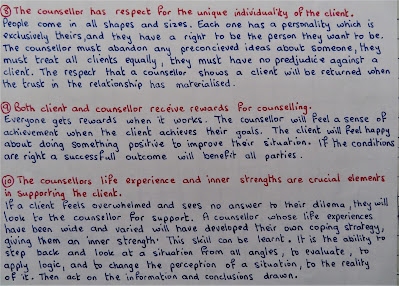 ⑧ The counsellor has respect for the unique individuality of the client.
People come in all shapes and sizes. Each one has a personality which is
exclusively theirs, and they have a right to be the person they want to be.
The counsellor must abandon any preconcieved ideas about someone, they
must treat all clients equally, they must have no predjudice against a
client. The respect that a counsellor shows a client will be returned when
the trust in the relationship has materialised.
⑨ Both client and counsellor receive rewards for counselling.
Everyone gets rewards when it works. The counsellor will feel a sense of
achievement when the client achieves their goals. The client will feel happy
about doing something positive to improve their situation. If the conditions
are right a successfull outcome will benefit all parties.
⑩ The counsellors life experience and inner strengths are crucial elements
in supporting the client.
If a client feels overwhelmed and sees no answer to their dilema, they will
look to the counsellor for support. A counsellor whose life experiences
have been wide and varied will have developed their own coping strategy,
giving them an inner strength. This skill can be learnt. It is the ability to
step back and look at a situation from all angles, to evaluate, to
apply logic, and to change the perception of a situation, to the reality
of it. Then act on the information and conclusions drawn.